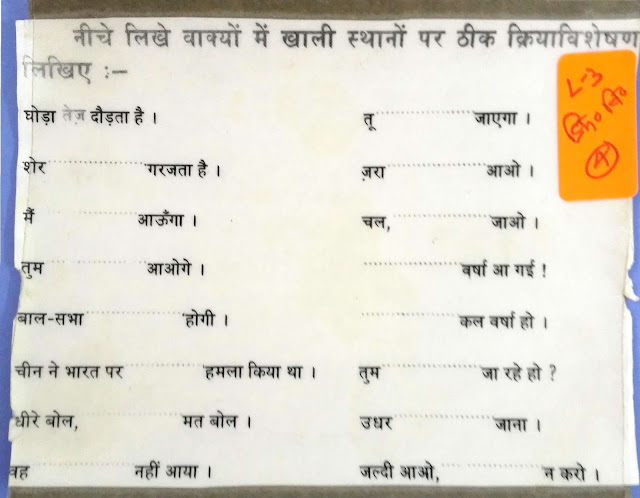 नीचे लिखे वाक्यों में खाली स्थानों पर ठीक क्रियाविशेषण
लिखिए :—
घोड़ा तेज़ दौड़ता है ।
शेर ................ गरजता है ।
मैं ................ आऊँगा ।
तुम ................ आओगे ।
बाल-सभा ................ होगी ।
चीन ने भारत पर ................ हमला किया था ।
धीरे बोल, ................ मत बोल ।
वह ................ नहीं आया ।
तू ................ जाएगा ।
ज़रा ................ आओ ।
चल, ................ जाओ ।
................ वर्षा आ गई !
................ कल वर्षा हो ।
तुम ................ जा रहे हो ?
उधर ................ जाना ।
जल्दी आओ, ................ न करो ।
L-3
क्रि० वि०